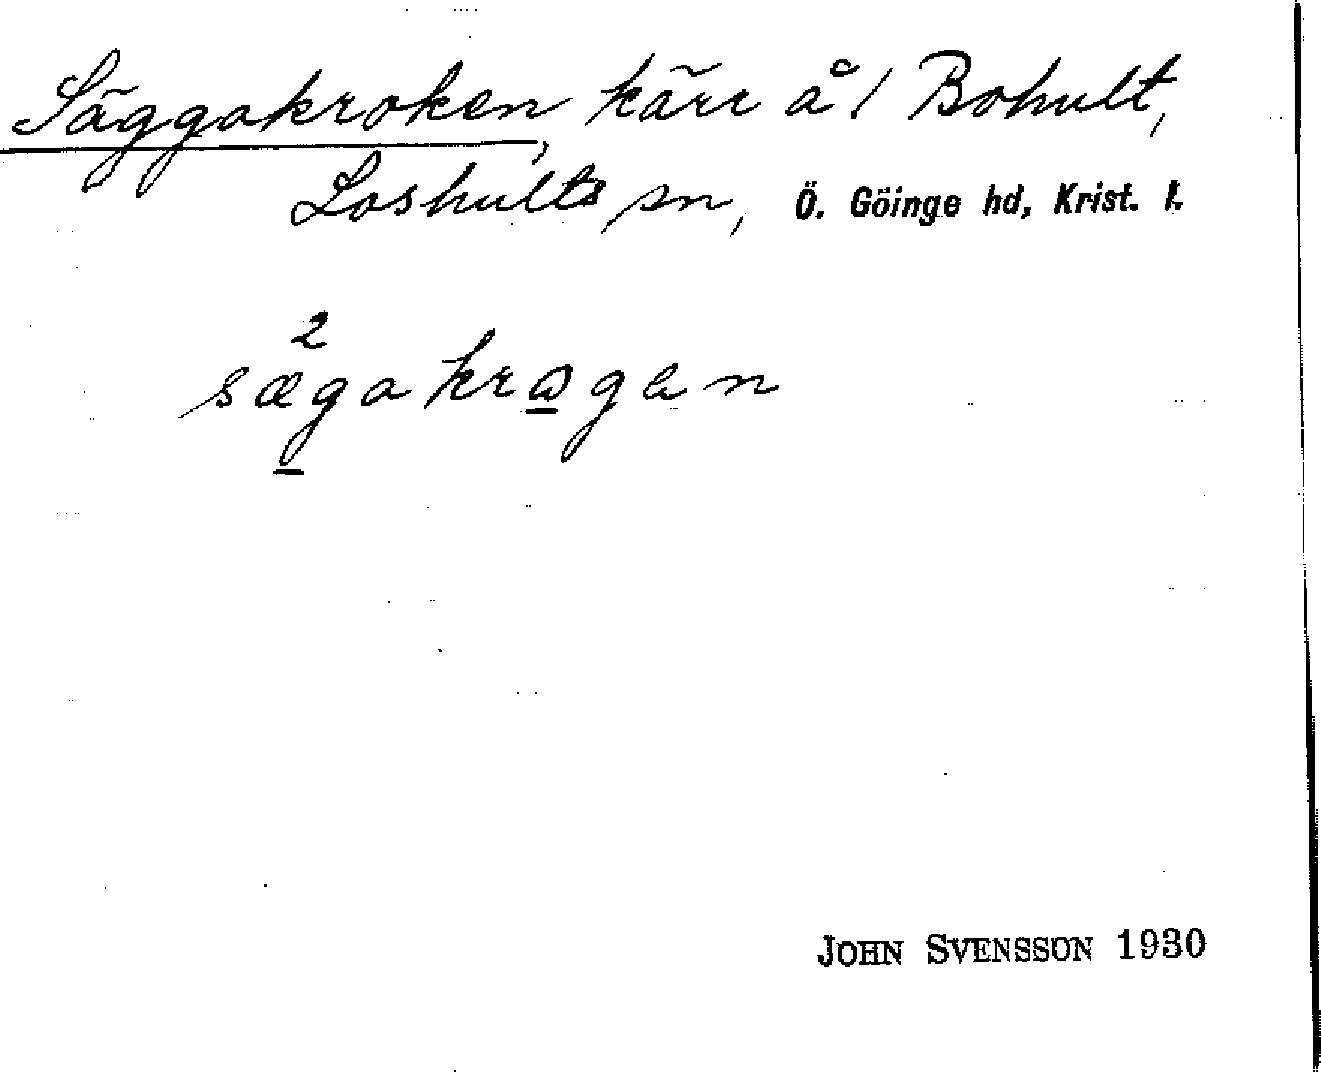 Säggakroken, kärr å 1 Bohult,
Loshults sn, Ö. Göinge hd, Krist. l.
2
sægakrɷgen
JOHN SVENSSON 1930